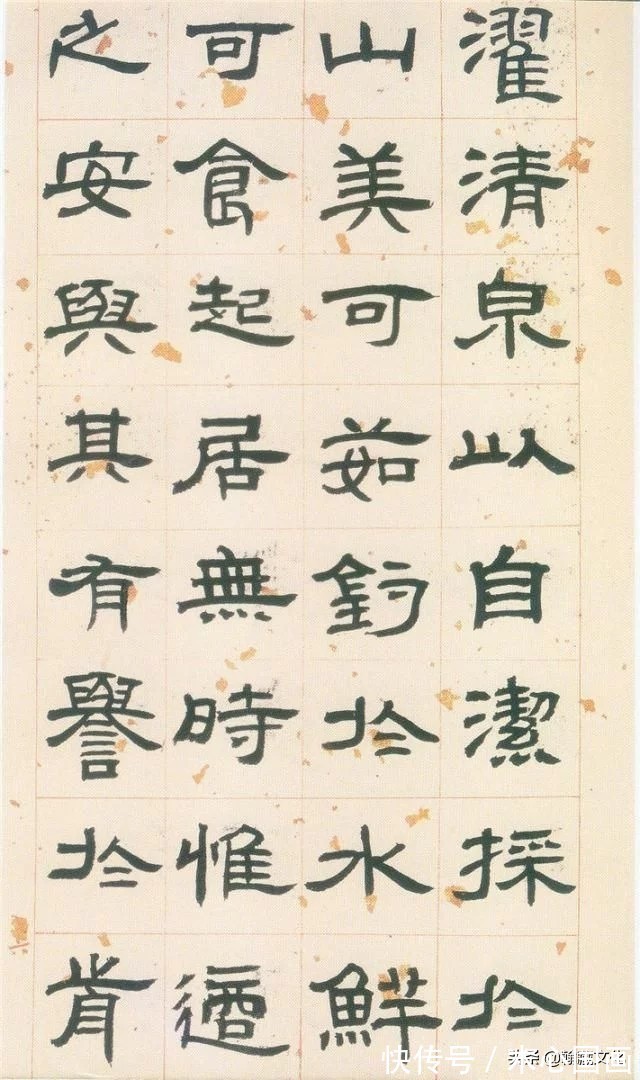 濯清泉以自潔採於
山美可茹釣於水鮮
可食起居無時惟適
之安與其有譽於前
头条
快传号 /